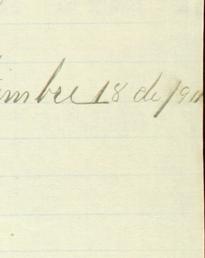 imbre 18 de 191